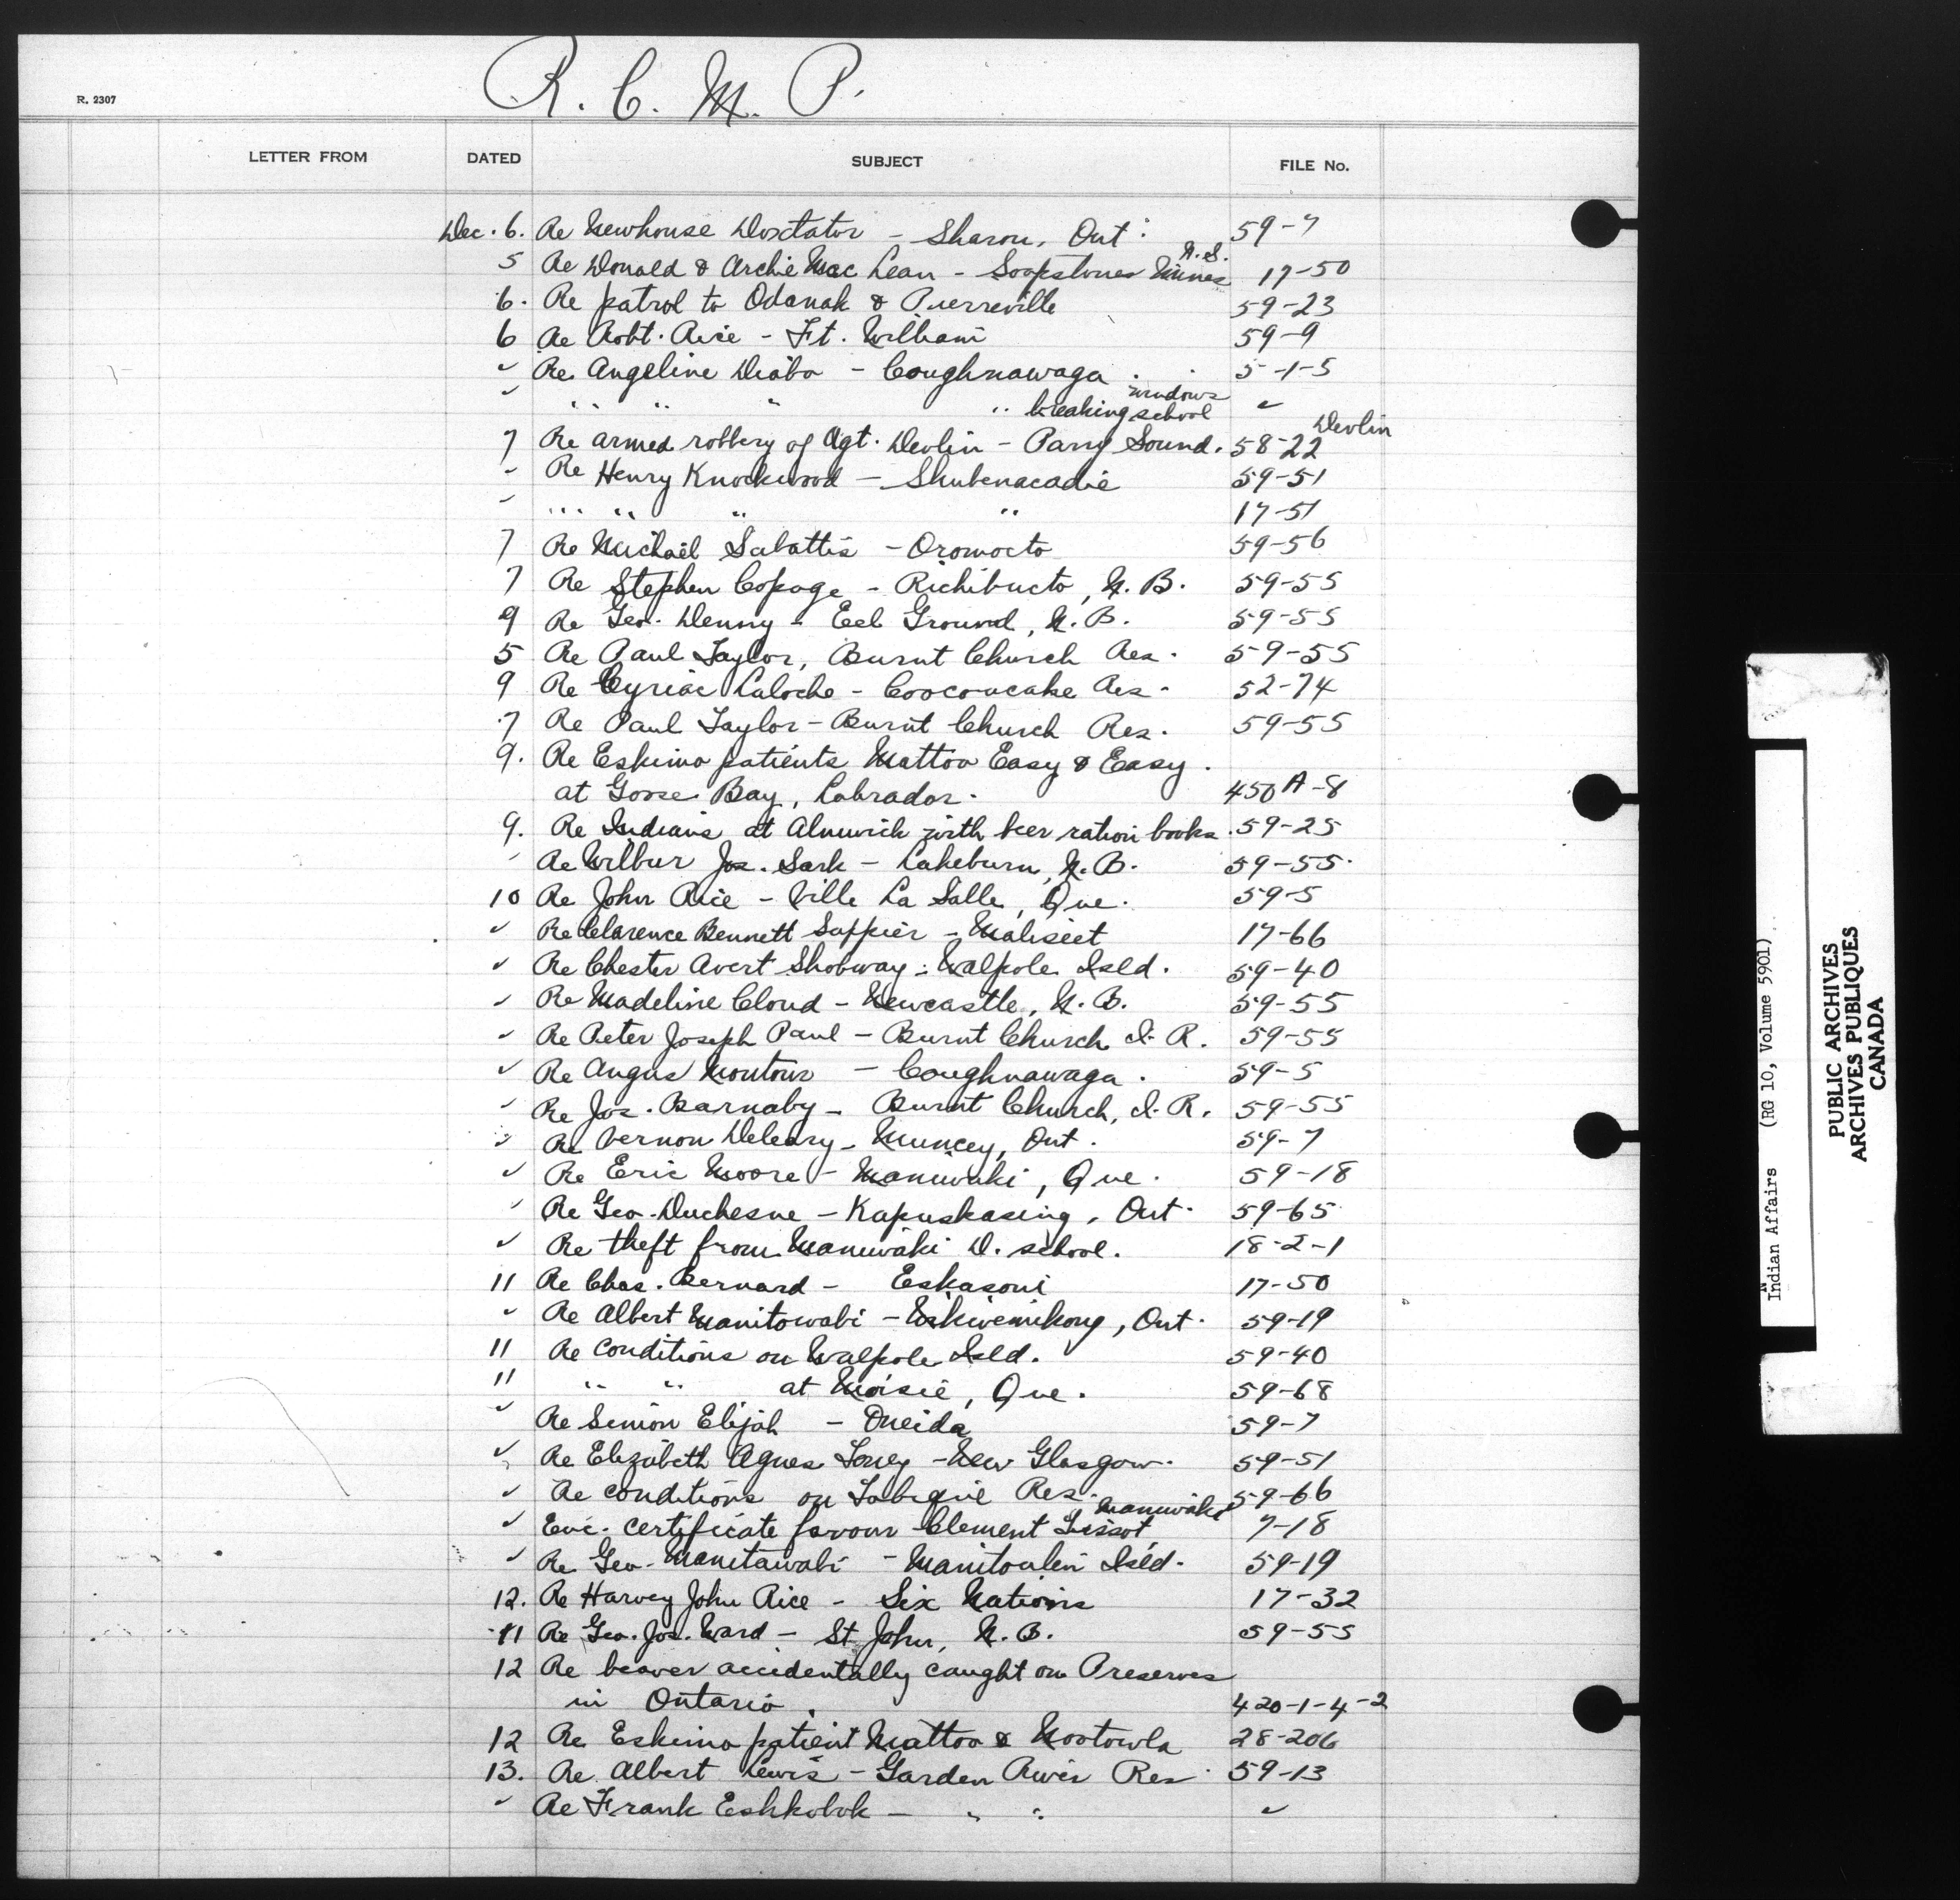 R. C. M. P.
R. 2307
LETTER FROM DATED SUBJECT FILE No.
Dec. 6. Re Newhouse Doxtator - Sharon, Ont. 59-7
5 Re Donald & Archie MacLean - Soapstone Mines N.S. 17-50
6. Re patrol to Odanak & Pierreville 59-23
6 Re Robt. Rice - Ft. William 59-9
" Re Angeline Diabo - Coughnawaga . 5-1-5
" " " " " breaking school windows "
7 Re armed robbery of Agt. Devlin - Parry Sound. 58-22 Devlin
" Re Henry Knockwood - Shubenacadie 59-51
" " " " " 17-51
7 Re Michael Sabattis - Oromocto 59-56
7 Re Stephen Copage - Richibucto, N. B. 59-55
9 Re Geo. Denny - Eel Ground, N. B. 59-55
5 Re Paul Taylor, Burnt Church Res. 59-55
9 Re Cyriac Laloche - Coocoocahe Res. 52-74
7 Re Paul Taylor - Burnt Church Res. 59-55
9. Re Eskimo patients Mattoo Easy & Easy .
at Goose Bay, Labrador. 450 A-8
9. Re Indians at Alnwick with beer ration books. 59-25
" Re Wilbur Jos. Sark - Lakeburn, N. B. 59-55.
10 Re John Rice - Ville La Salle, Que. 59-5
" Re Clarence Bennett Sappier - Maliseet 17-66
" Re Chester Avert Shobway - Walpole Isld. 59-40
" Re Madeline Cloud - Newcastle, N. B. 59-55
" Re Peter Joseph Paul - Burnt Church I. R. 59-55
" Re Angus Montour - Coughnawaga . 59-5
" Re Jos. Barnaby - Burnt Church, I. R. 59-55
" Re Vernon Deleary - Muncey, Ont. 59-7
" Re Eric Moore - Maniwaki, Que. 59-18
" Re Geo. Duchesne - Kapuskasing, Ont. 59-65
" Re theft from Maniwaki D. school. 18-2-1
11 Re Chas. Bernard - Eskasoni 17-50
" Re Albert Manitowabi - Wikwemikong, Ont. 59-19
11 Re conditions on Walpole Isld. 59-40
11 " " at Moisie, Que. 59-68
" Re Simon Elijah - Oneida 59-7
" Re Elizabeth Agnes Toney - New Glasgow. 59-51
" Re conditions on Tobique Res. 59-66
" Enc. certificate favour Clement Tissot Maniwaki 7-18
" Re Geo. Manitawabi - Manitoulin Isld. 59-19
12. Re Harvey John Rice - Six Nations 17-32
11 Re Geo. Jos. Ward - St John, N. B. 59-55
12 Re beaver accidentally caught on Preserves
in Ontario. 420-1-4-2
12 Re Eskimo patient Mattoo & Kootowla 28-206
13. Re Albert Lewis - Garden River Res. 59-13
" Re Frank Eshkobok - " " "
Indian Affairs (RG 10, Volume 5901)
PUBLIC ARCHIVES
ARCHIVES PUBLIQUES
CANADA